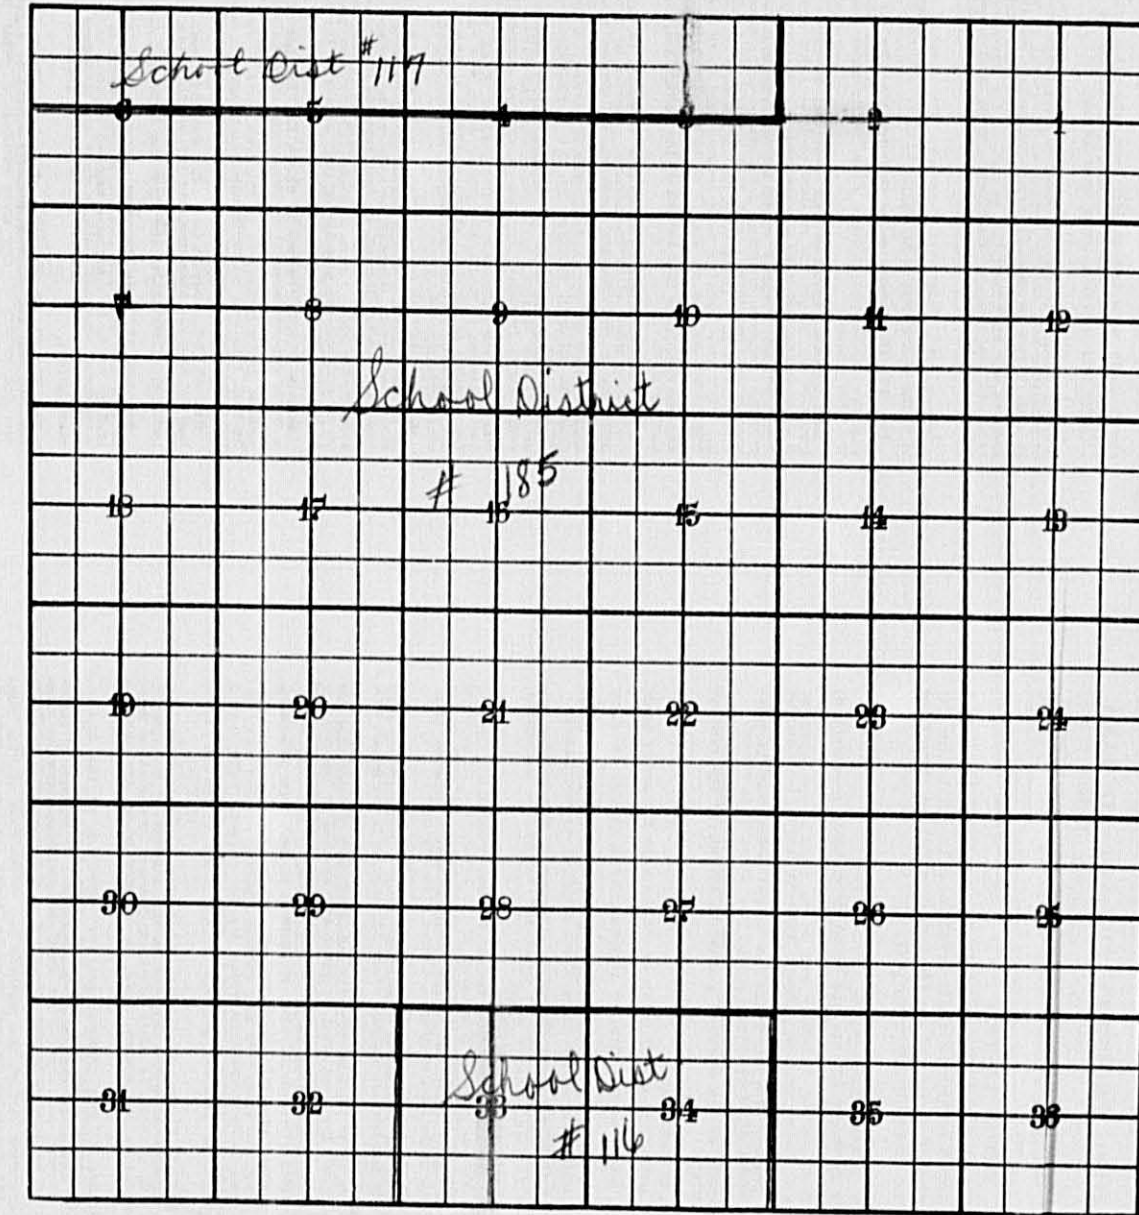 School Dist # 117
6 5 4 3 2 1
7 8 9 10 11 12
School District
# 185
18 17 16 15 14 13
19 20 21 22 23 24
30 29 28 27 26 25
School Dist
31 32 33 34 35 36
# 116